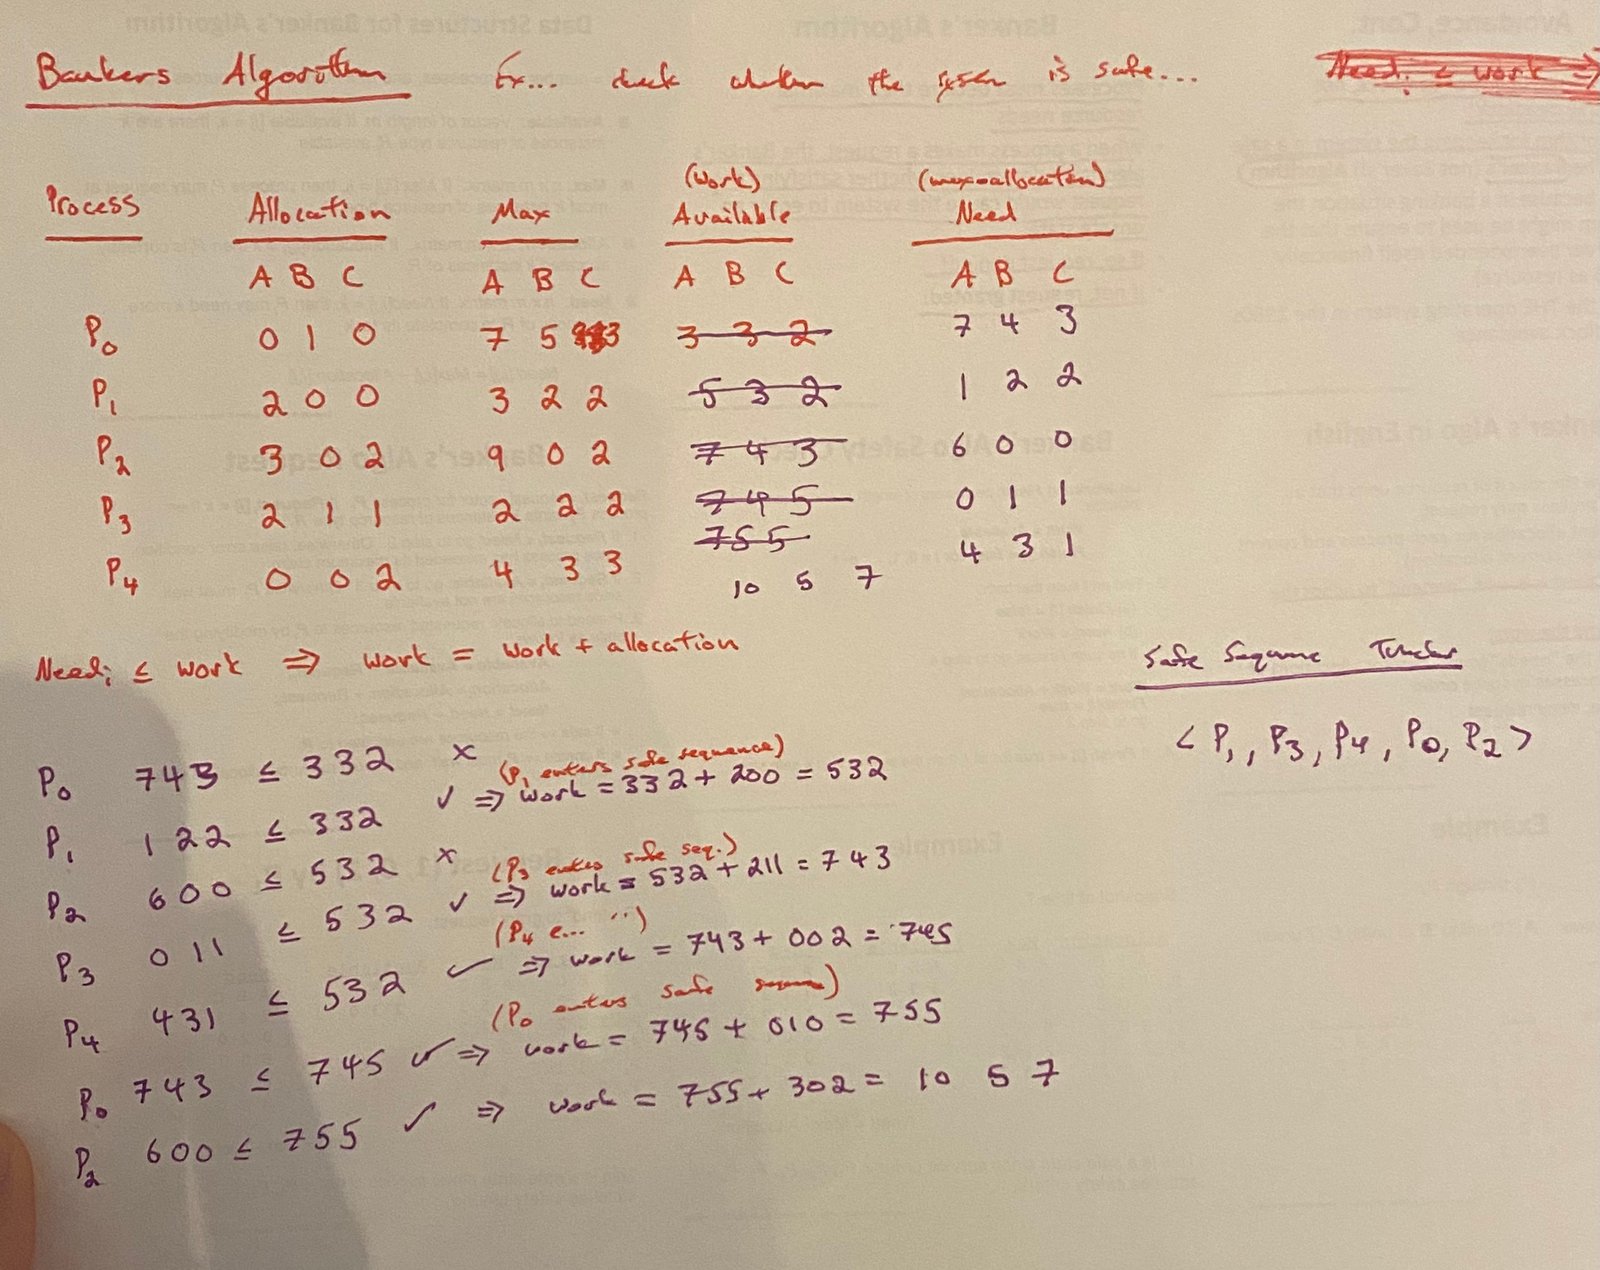 Bankers Algorithm Ex... check whether the system is safe... Need i ≤ work ⇒
(work) (max-allocation)
Process Allocation Max Available Need
A B C A B C A B C A B C
P0 0 1 0 7 5 3 3 3 2 7 4 3
P1 2 0 0 3 2 2 5 3 2 1 2 2
P2 3 0 2 9 0 2 7 4 3 6 0 0
P3 2 1 1 2 2 2 7 4 5 0 1 1
7 5 5
P4 0 0 2 4 3 3 10 5 7 4 3 1
Need i ≤ work ⇒ work = work + allocation
Safe Sequence Tracker
< P1, P3, P4, P0, P2 >
P0 743 ≤ 332 x
(P1 enters safe sequence)
P1 122 ≤ 332 ✓ ⇒ work = 332 + 200 = 532
P2 600 ≤ 532 x
(P3 enters safe seq.)
P3 011 ≤ 532 ✓ ⇒ work = 532 + 211 = 743
(P4 e... '')
P4 431 ≤ 532 ✓ ⇒ work = 743 + 002 = 745
(P0 enters safe sequence)
P0 743 ≤ 745 ✓ ⇒ work = 745 + 010 = 755
P2 600 ≤ 755 ✓ ⇒ work = 755 + 302 = 10 5 7